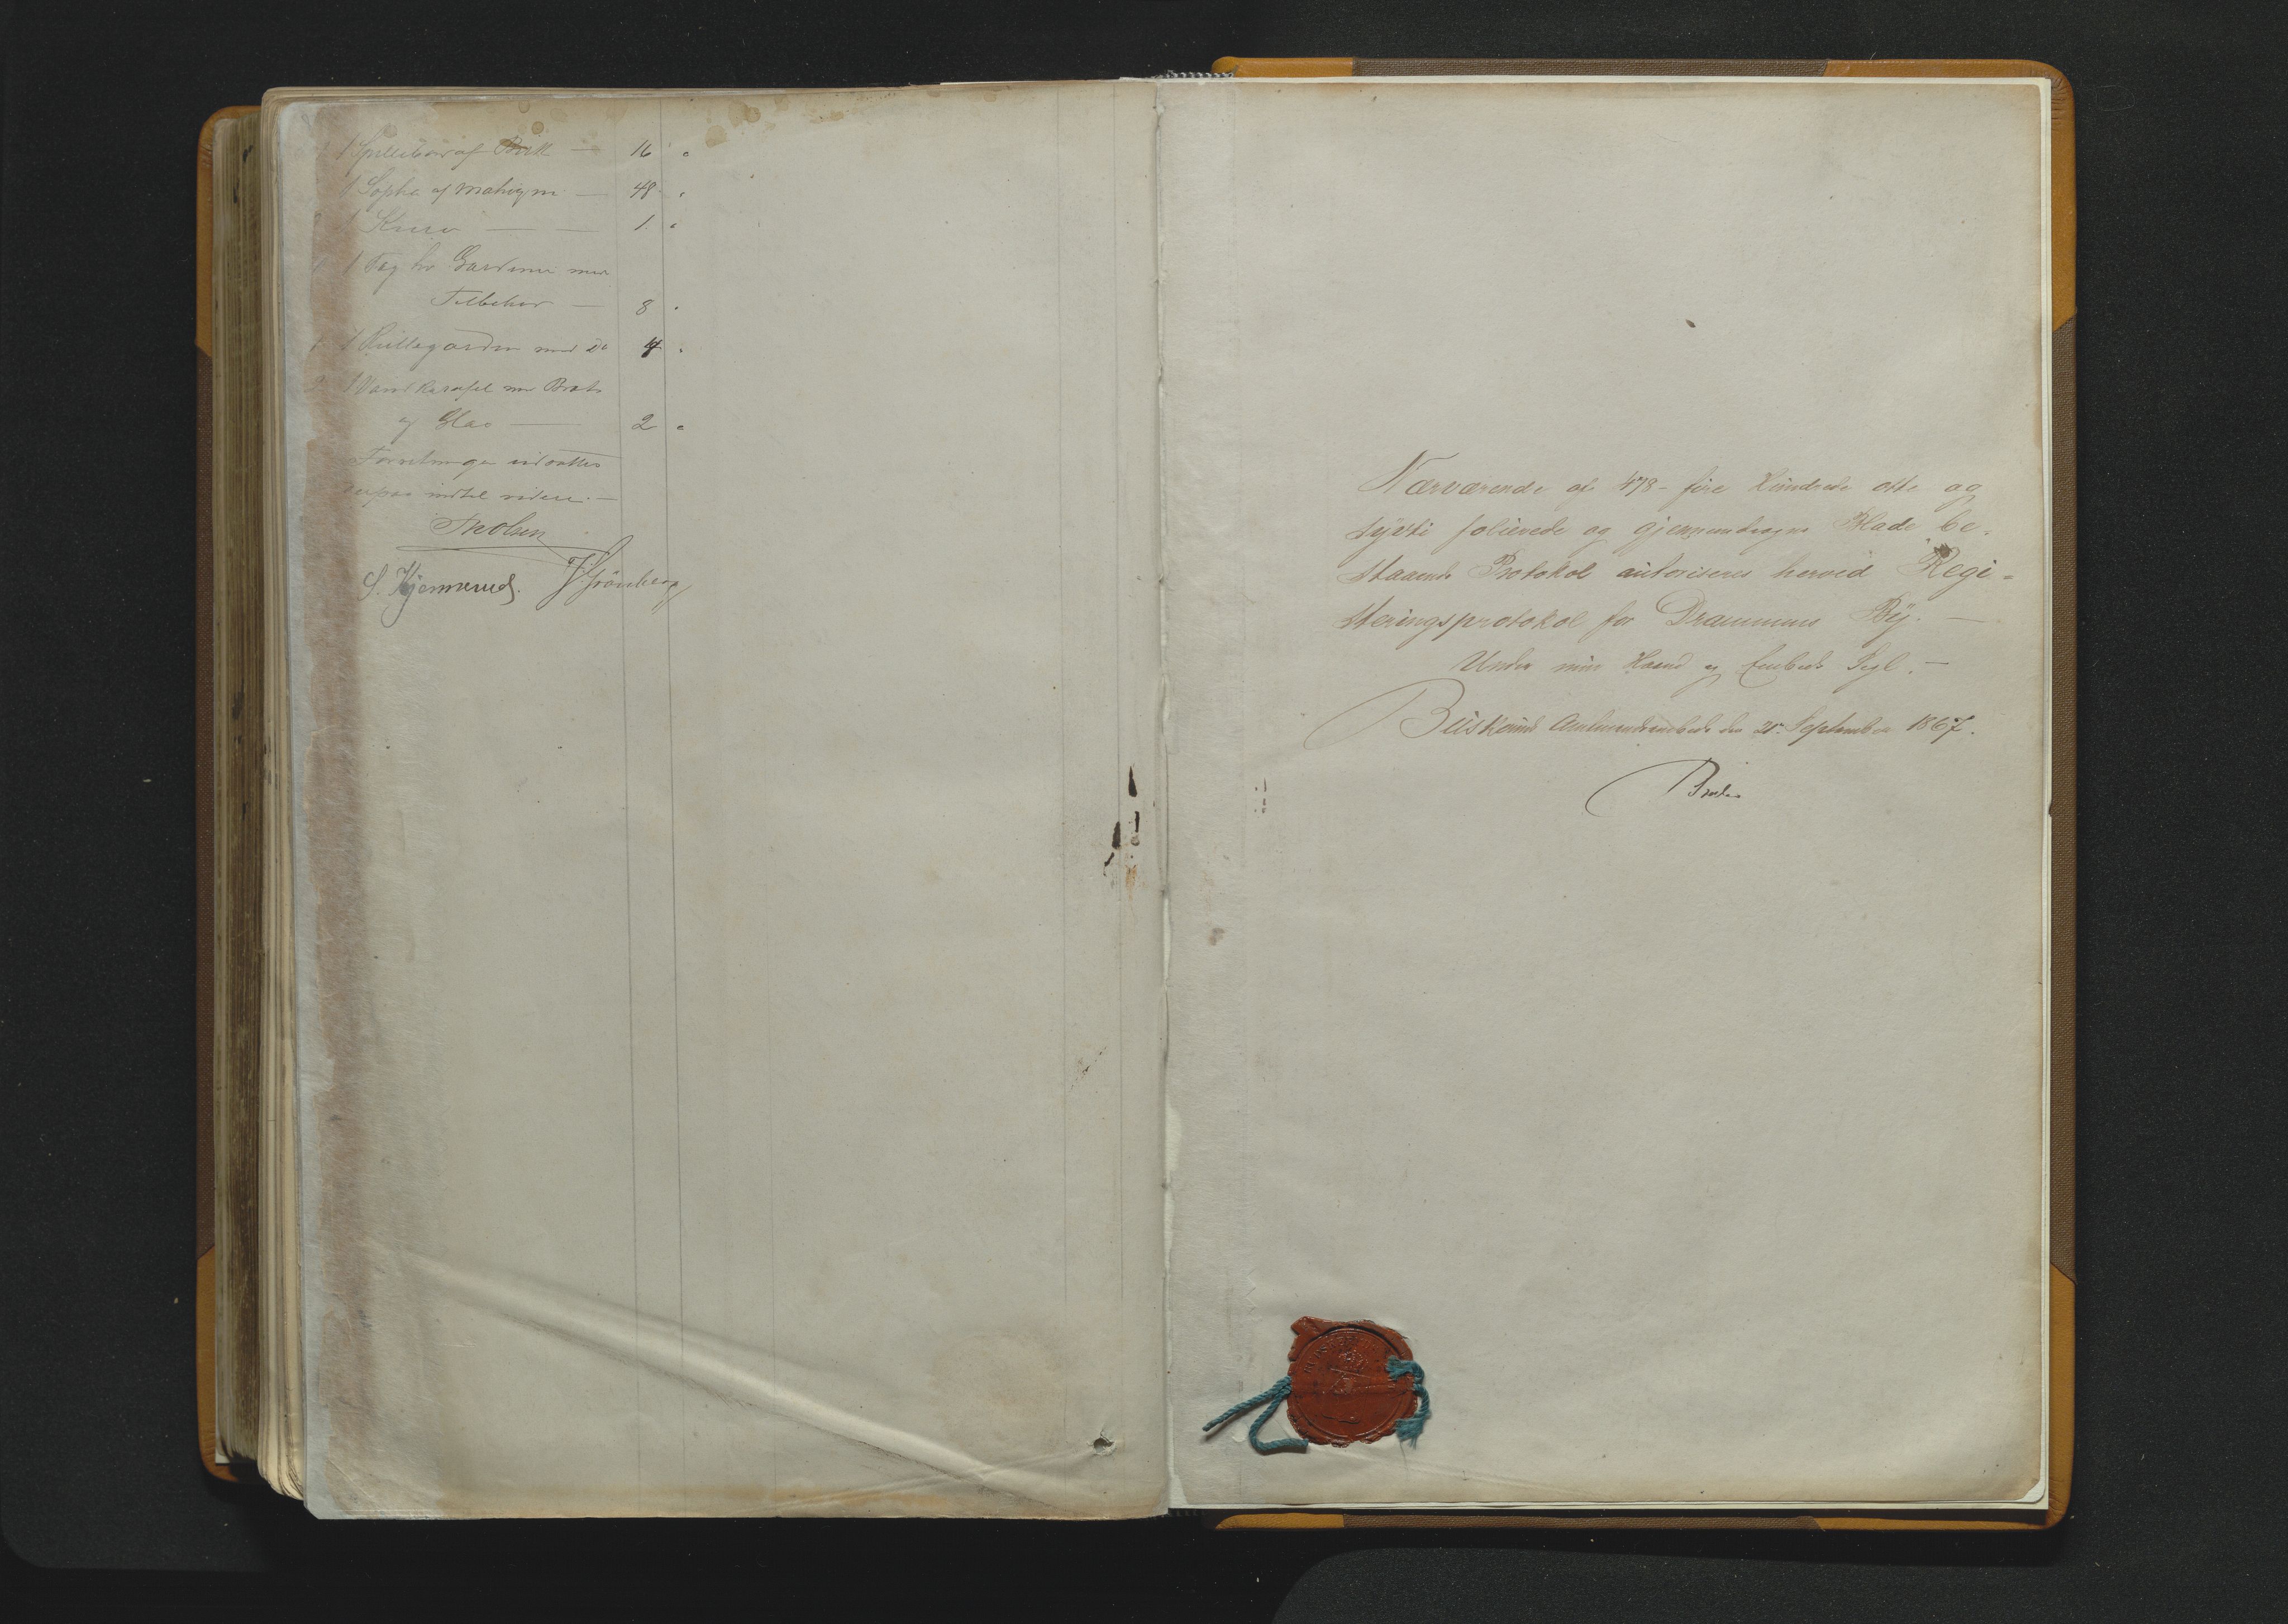 1 Spillebord af Birk — 16 "
1 Sopha af Mahogni — 48 "
1 — — 1 "
1 Fag hv Gardiner med
Tilbehør — 8 "
1 Rullegardin med do 4 "
1 Vandkaraffel med Bret
af Glas — 2 "
Forretningen udsattes
indtil videre. —
S. Hjemmerud. J. Grönberg
Nærværende af 478 – fire hundrede otte og
sytti folierede og gjennemdragne Blade be-
staaende Protokol autoriseres herved Regi-
steringsprotokol for Drammens By. —
Under min Haand og Embeds Segl. —
Buskerud Amtmandsembede den 21. September 1867.